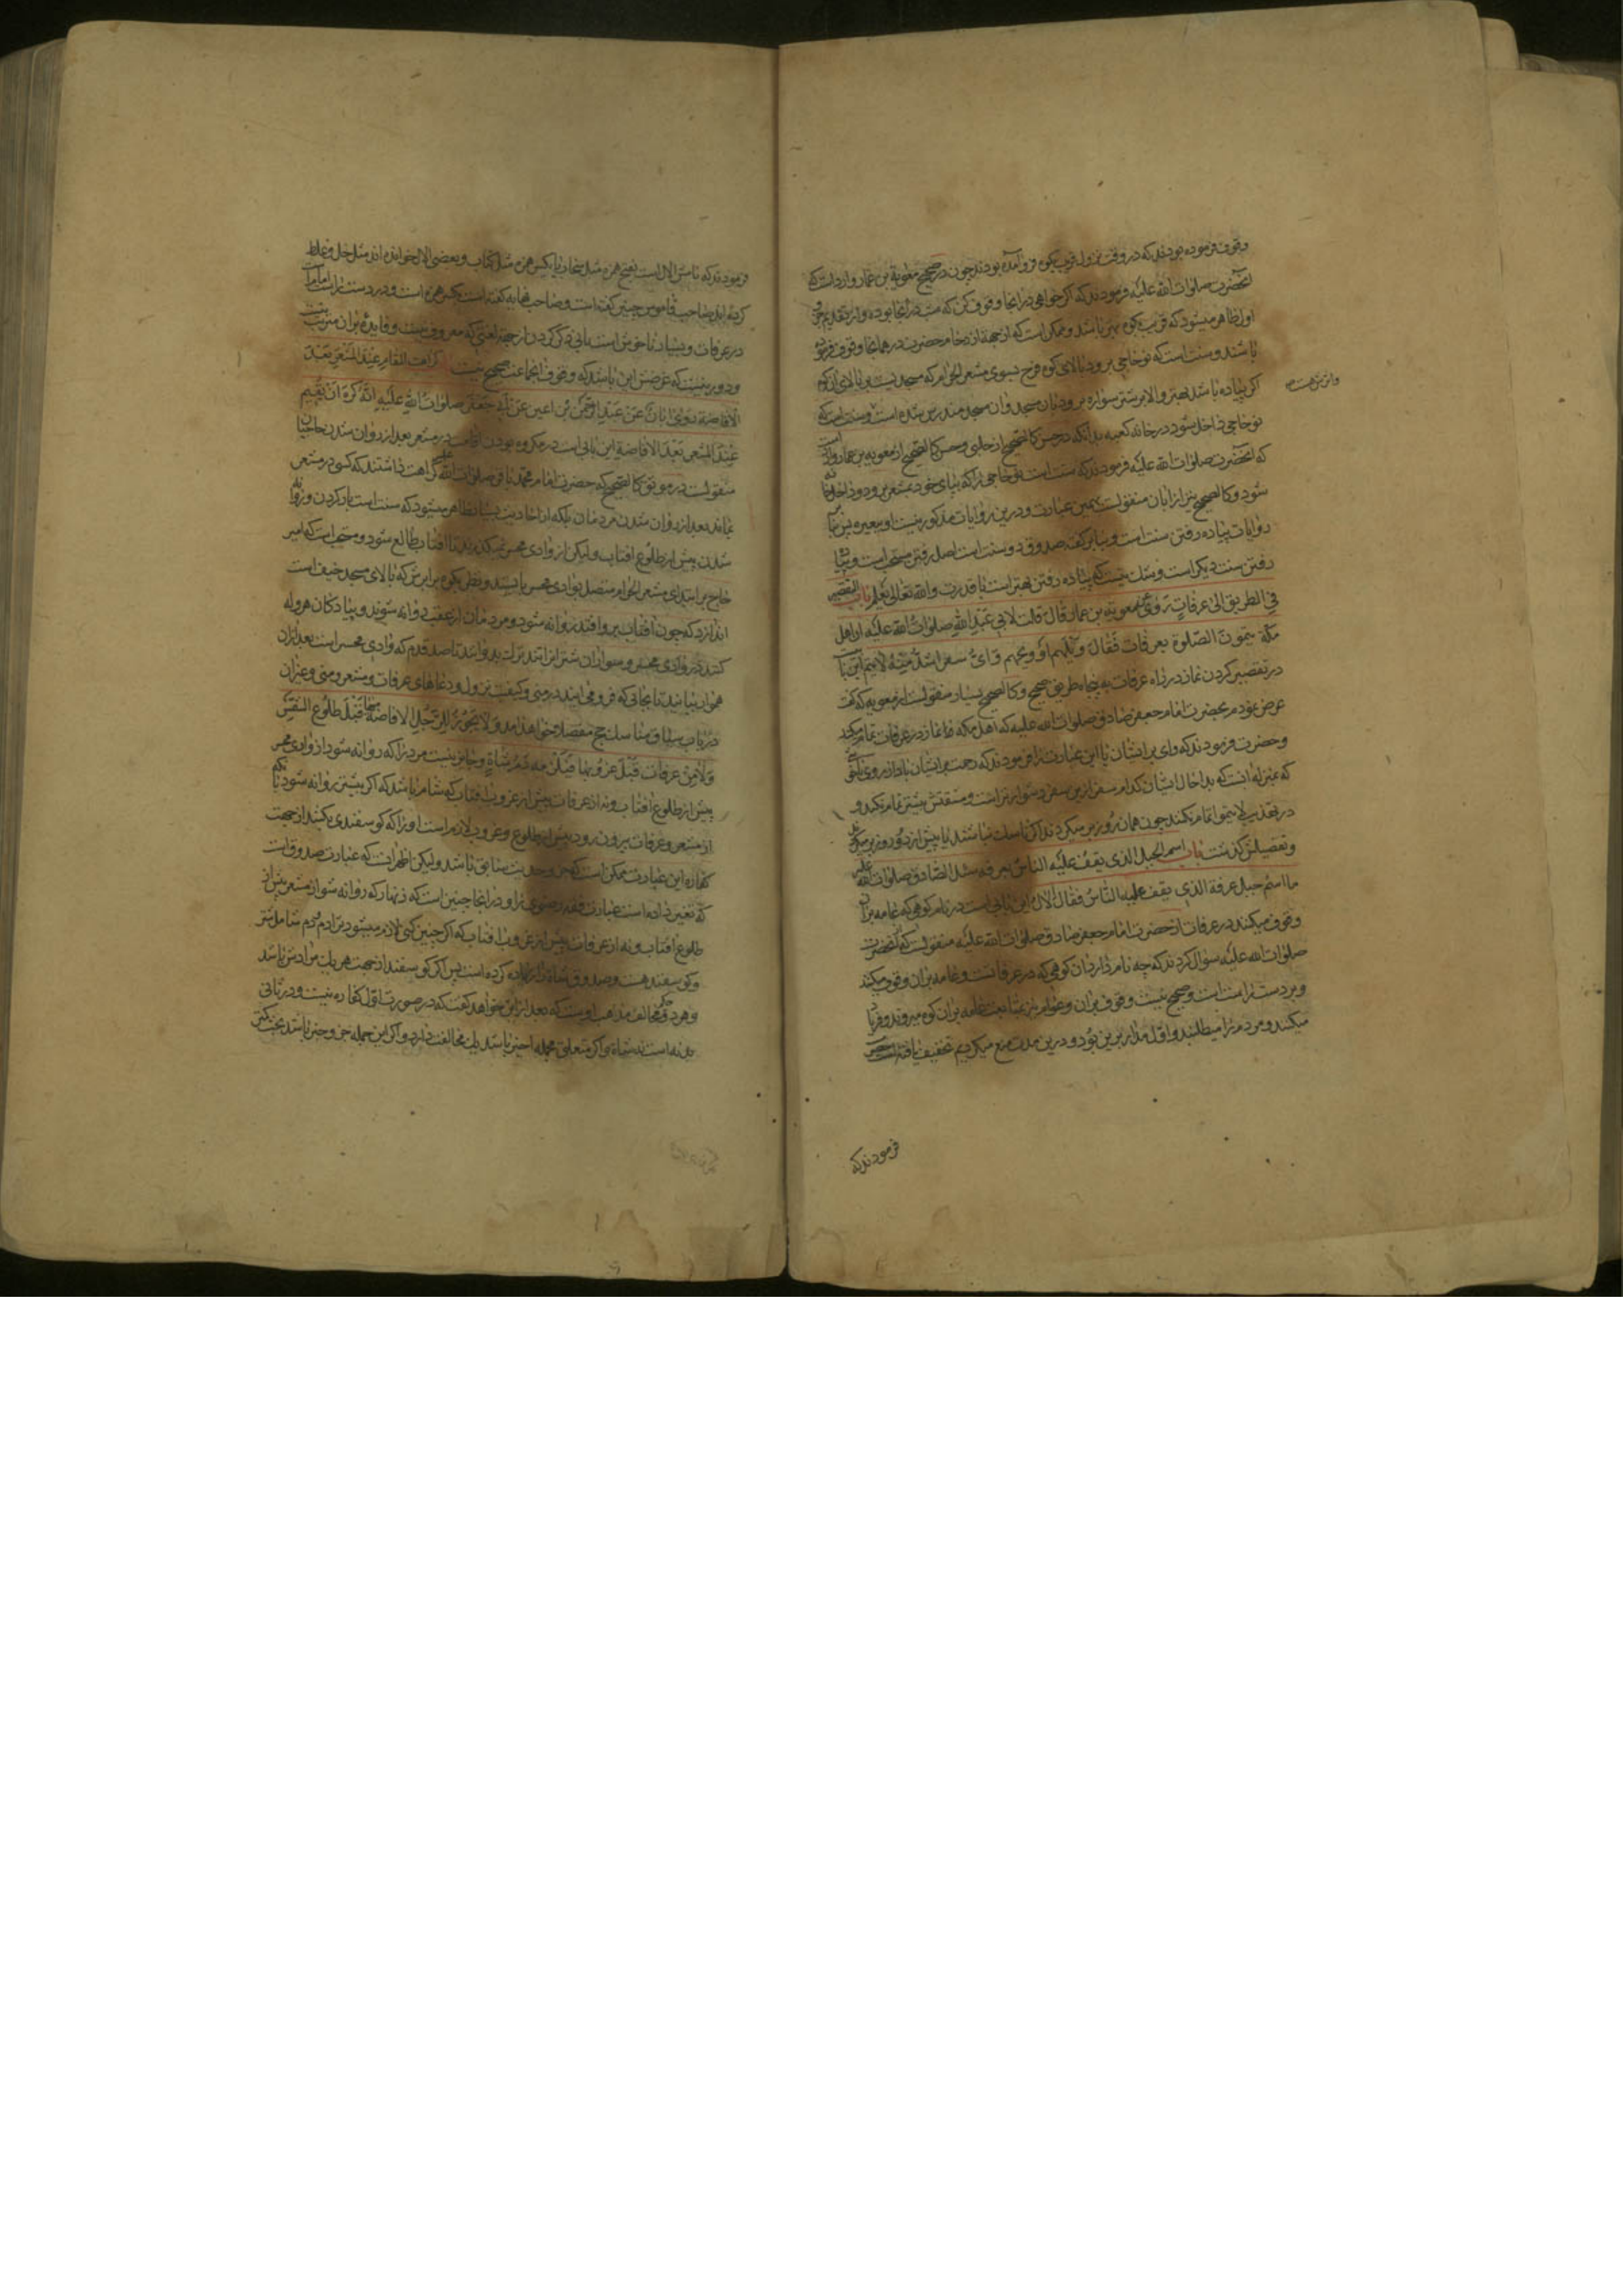 وقوف فرموده بودند که در وقت نزول قریب بکوه فرود آمده بودند چون در صحیح معویة بن عمار وارد است که
آنحضرت صلوات الله علیه فرمودند که اگر خواهی در انجا وقوف کن که مت در انجا بوده و از تقدیم
اول ظاهر میشود که قریب بکوه بهتر باشد و ممکن است که از جهة ازدحام حضرت در همانجا وقوف فرموده
باشند و سنت است که نوحاجی برود بالای کوه قزح بسوی مشعر الحرام که مسجدیست بر بالای آن کوه
واثرش هست
اگر پیاده باشد بهتر والا بر شتر سواره برود بان مسجد و آن مسجد مندرس شده است و سنت است که
نوحاجی داخل شود در خانه کعبه بدانکه در حسن کالصحیح از حلبی و حسن کالصحیح از معویه بن عمار وارد است
که آنحضرت صلوات الله علیه فرمودند که سنت است نوحاجی را که بپای خود بمشعر برود و داخل خانه
شود و کالصحیح نیز از ابان منقولست بهمین عبارت و درین روایات مذکور نیست او ببعیره پس بنابر
روایات پیاده رفتن سنت است و بنابر گفته صدوق دو سنت است اصل رفتن مستحب است و پیاده
رفتن سنت دیگر است و شک نیست که پیاده رفتن بهتر است با قدرت والله تعالی یعلم باب التقصیر
فی الطریق الی عرفات روی معویة بن عمار قال قلت لابی عبد الله صلوات الله علیه ان اهل
مکة یتمون الصلوة بعرفات فقال ویلهم او ویحهم و ای سفر اشد منه لا یتم این باب
در تقصیر کردن نماز در راه عرفات به پنجاه طریق صحیح و کالصحیح بسیار منقولست از معویه که گفت
عرض نمودم بحضرت امام جعفر صادق صلوات الله علیه که اهل مکه نماز در عرفات تمام میکنند
و حضرت فرمودند که وای بر ایشان یا این عبارت را فرمودند که رحمت بر ایشان باد از روی
که بمنزله انست که بدا حال ایشان کدام سفر ازین سفر دشوارتر است و مشقتش بیشتر تمام نکند و
در تهذیب لا یتموا تمام نکنند چون همان روز بر میگردند اگر ناسک نباشند یا پیش از ده روز بر میگردند
و تفصیلش گذشت باب اسم الجبل الذی یقف علیه الناس بعرفه سئل الصادق صلوات الله علیه
ما اسم جبل عرفة الذی یقف علیه الناس فقال الال این بابی است در نام کوهی که عامه بران
وقوف میکنند در عرفات از حضرت امام جعفر صادق صلوات الله علیه منقولست که آنحضرت
صلوات الله علیه سؤال کردند که چه نام دارد ان کوهی که در عرفاتست و عامه بران وقوف میکنند
و بر دست راست است و صحیح نیست وقوف بران و عوام نیز بمتابعت عامه بران کوه میروند و فریاد
میکنند و مردم را میطلبند و اول مدار برین بود و درین مدت منع میکردیم تخفیف یافته است
فرمودند که
فرمودند که نامش الال است بفتح همزه مثل سحاب یا بکسر همزه مثل کتاب و بعضی الال خوانده اند مثل خل و غلط
کرده اند صاحب قاموس چنین گفته است و صاحب نهایه گفته است بکسر همزه است و در دست راست امام است
در عرفات و بسیار ناخوش است بانی ذکر کردن از جهة لغتی که معروف نیست و فایدۀ بران مترتب نیست
و دور نیست که غرضش این باشد که وقوف انجا عبث صحیح نیست کراهت المقام عند المشعر بعد
الافاضة روی ابان عن عبد الرحمن بن اعین عن ابی جعفر صلوات الله علیه انه کره ان یقیم
عند المشعر بعد الافاضة این بابی است در مکروه بودن اقامت در مشعر بعد از روان شدن حاجیان
منقولست در موثق کالصحیح که حضرت امام محمد باقر صلوات الله علیه کراهت داشتند که کسی در مشعر
بماند بعد از روان شدن مردمان بلکه از احادیث بسیار ظاهر میشود که سنت است بار کردن و روانه
شدن پیش از طلوع افتاب ولیکن از وادی محسر نمیگذرند تا افتاب طالع شود و مستحب است که امیر
حاج بر ابتدای مشعر الحرام متصل بوادی محسر بایستد و نظر بکوه برابرش که بالای مسجد خیف است
اندازد که چون افتاب بر او افتد روانه شود و مردمان از عقب روانه شوند و پیادگان هروله
کنند در وادی محسر و سواران شتر را تندتر بدوانند تا صد قدم که وادی محسر است بعد از ان
هموار بیایند تا بجائی که فرود می ایند در منی و کیفیت نزول و دعاهای عرفات و مشعر و منی و غیر ان
در باب سیاق مناسک حج مفصلا خواهد آمد و لا یجوز للرجل الافاضة منها قبل طلوع الشمس
و لا من عرفات قبل غروبها فیلزمه دم شاة و جایز نیست مرد را که روانه شود از وادی محسر
پیش از طلوع افتاب و نه از عرفات پیش از غروب افتاب که شام باشد که اگر پیشتر روانه شود یا آنکه
از مشعر و عرفات بیرون رود پیش از طلوع و غروب لازم است او را که گوسفندی بکشد از جهت
کفاره این عبارت ممکن است که جزو حدیث سابق باشد ولیکن اظهر انست که عبارت صدوق است
که تغییر داده است عبارت فقه رضوی را و در انجا چنین است که زنهار که روانه شو از مشعر پیش از
طلوع افتاب و نه از عرفات پیش از غروب افتاب که اگر چنین کنی لازم میشود ترا دم و دم شامل شتر
و گوسفند هست و صدوق شاة را زیاده کرده است پس اگر گوسفند از جهت هر یک مرادش باشد
و هر دو مخالف مذهب اوست که بعد ازین خواهد گفت که در صورت اول کفاره نیست و در ثانی
بدنه است نه شاة و اگر متعلق بجمله اخیر باشد یک مخالفت دارد و اگر این جمله جزو خبر باشد